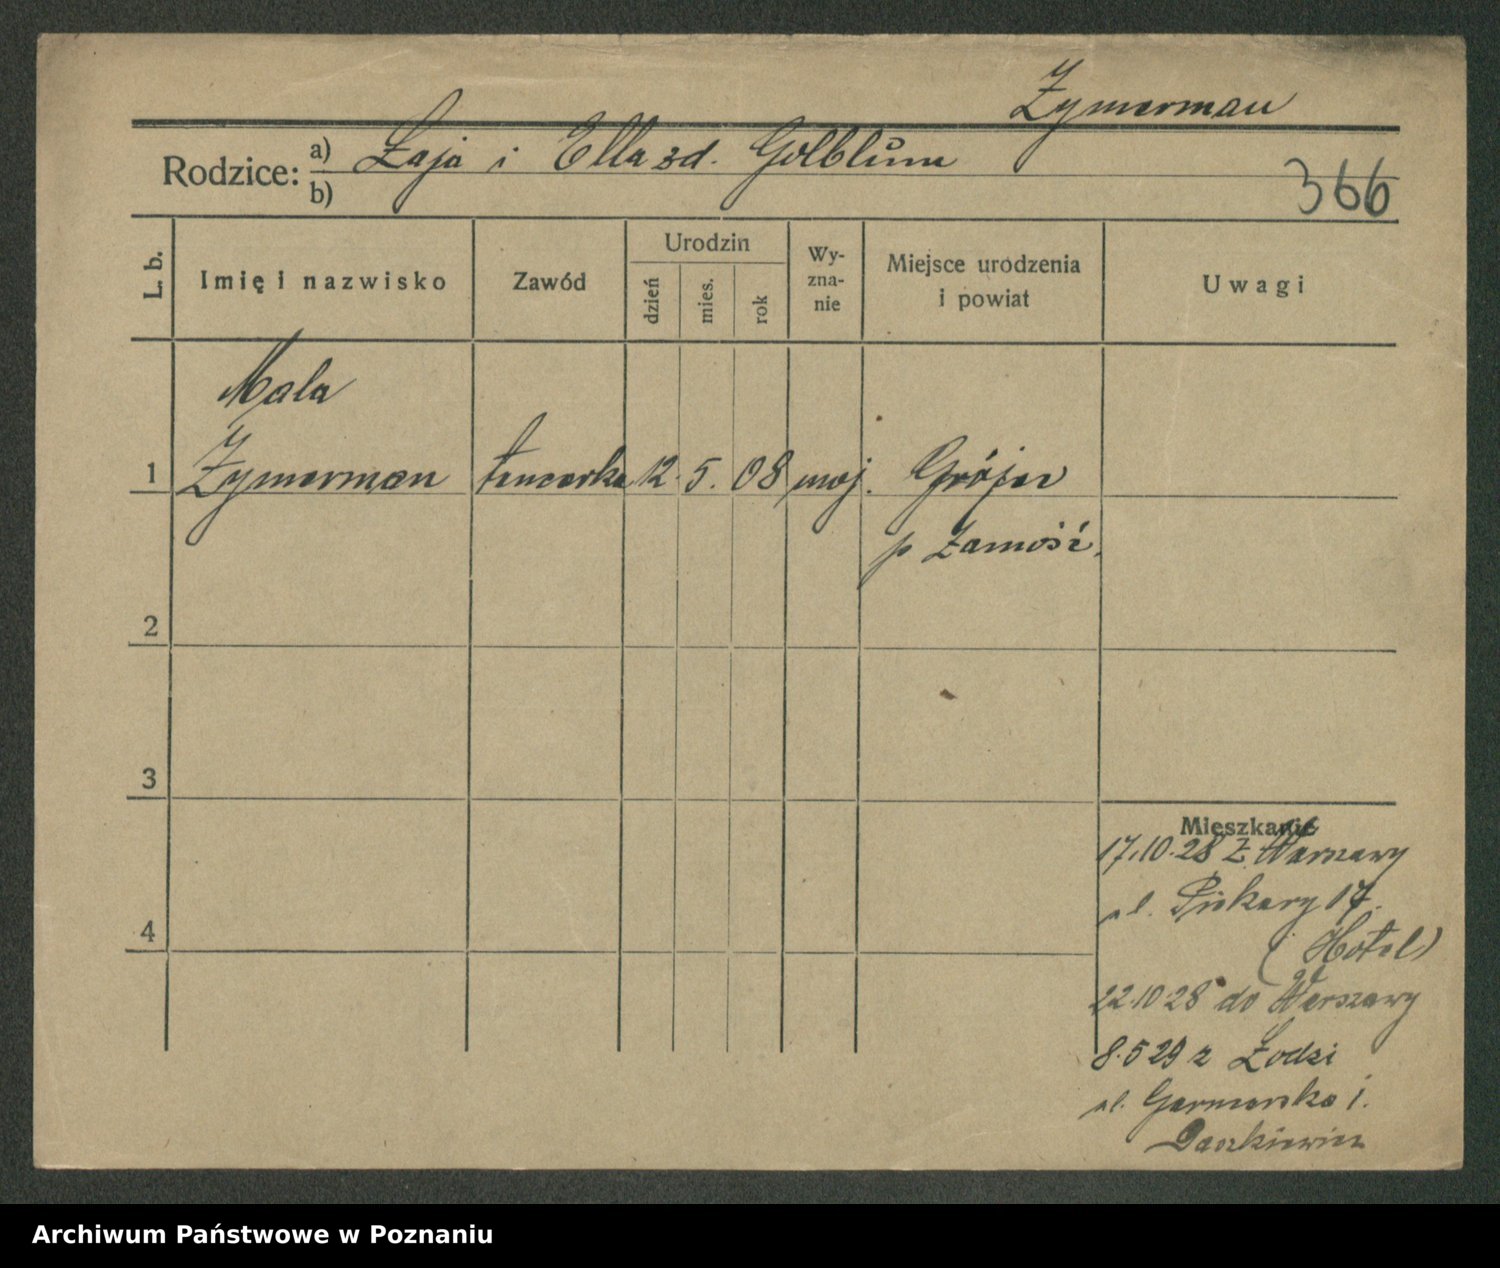 Zymerman
Rodzice: a) Łaja i Ella zd. Golblum
b)
366
L. b.
Imię i nazwisko
Zawód
Urodzin
dzień
mies.
rok
Wy-
zna-
nie
Miejsce urodzenia
i powiat
Uwagi
Mala
1 Zymerman tancerka 12. 5. 08 moj. Grójec
p Zamość.
2
3
4
Mieszkanie
17.10.28 z Warszawy
ul. Piekary 17.
(Hotel)
22.10 28 do Warszawy
8.5 29 z Łodzi
ul. Garncarska 1.
Daszkiewicz
Archiwum Państwowe w Poznaniu